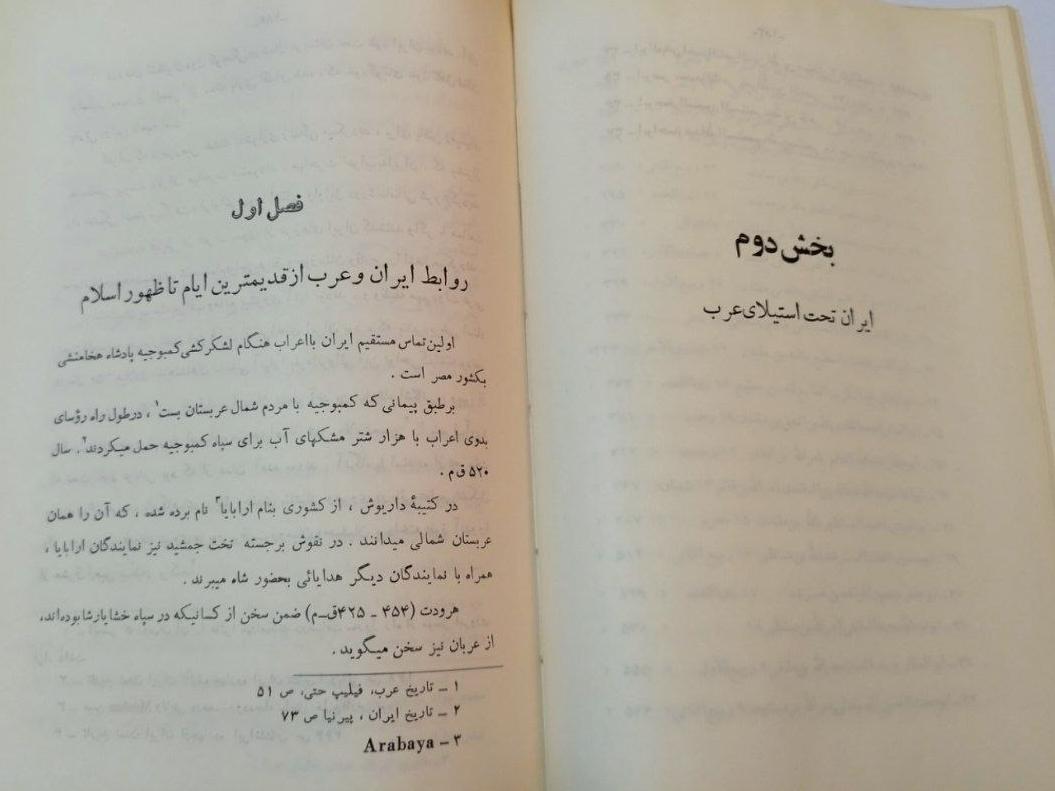 بخش دوم
ایران تحت استیلای عرب
فصل اول
روابط ایران و عرب از قدیمترین ایام تا ظهور اسلام
اولین تماس مستقیم ایران با اعراب هنگام لشکرکشی کمبوجیه پادشاه هخامنشی
بکشور مصر است .
برطبق پیمانی که کمبوجیه با مردم شمال عربستان بست۱ ، درطول راه رؤسای
بدوی اعراب با هزار شتر مشکهای آب برای سپاه کمبوجیه حمل میکردند۲ . سال
۵۲۰ ق م .
در کتیبهٔ داریوش ، از کشوری بنام ارابایا۳ نام برده شده ، که آن را همان
عربستان شمالی میدانند . در نقوش برجسته تخت جمشید نیز نمایندگان ارابایا ،
همراه با نمایندگان دیگر هدایائی بحضور شاه میبرند .
هرودت (۴۵۴ - ۴۲۵ ق-م) ضمن سخن از کسانیکه در سپاه خشایارشا بوده‌اند،
از عربان نیز سخن میگوید .
۱ - تاریخ عرب، فیلیپ حتی، ص ۵۱
۲ - تاریخ ایران ، پیرنیا ص ۷۳
۳ - Arabaya